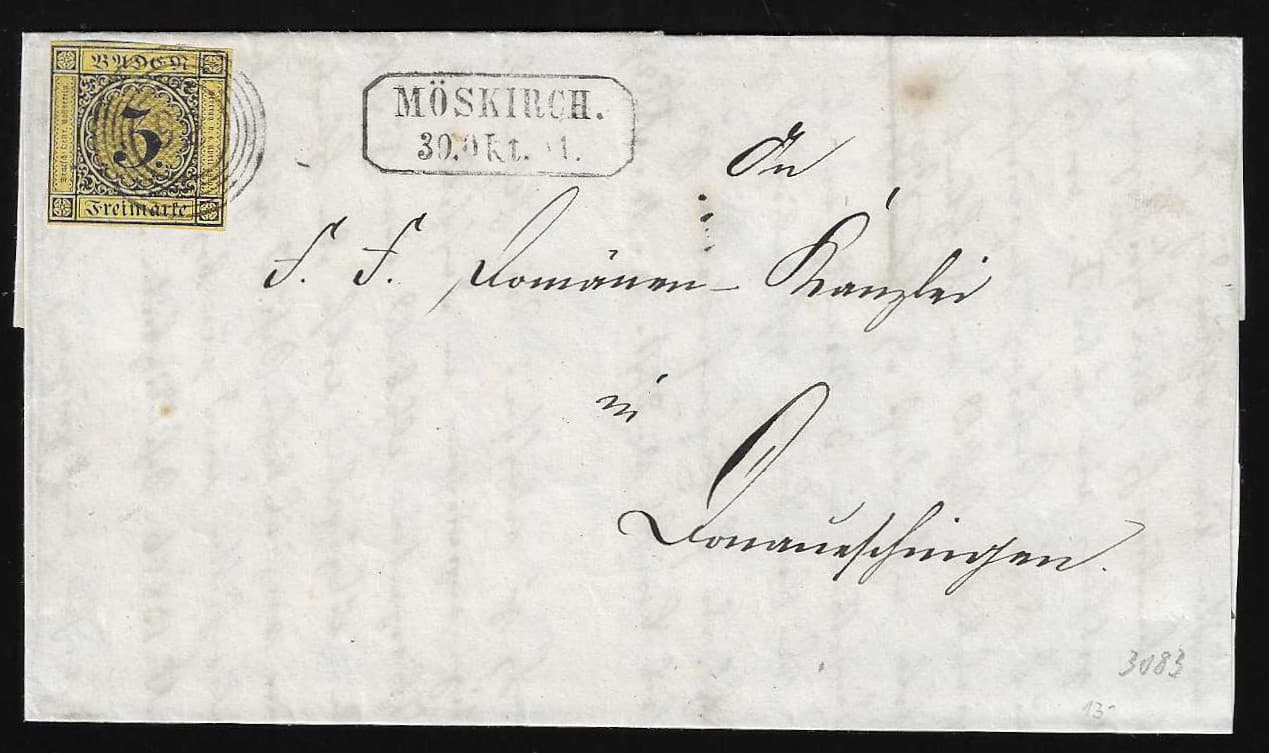 BADEN
3.
Freimarke
MÖSKIRCH.
30. Okt. 1.
An
F. F. Domänen-Kanzlei
in
Donaueschingen.
3083
13-